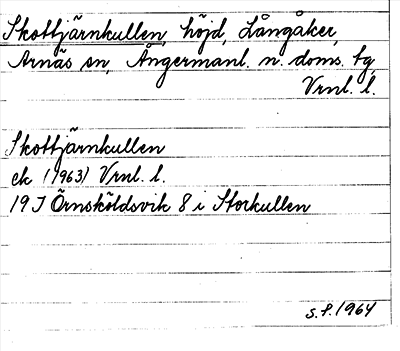 Skottjärnkullen, höjd, Långåker,
Arnäs sn, Ångermanl. n. doms. tg,
Vrnl. l.
Skottjärnkullen
ek (1963) Vrnl. l.
19 J Örnsköldsvik 8 i Storkullen
S.P. 1964